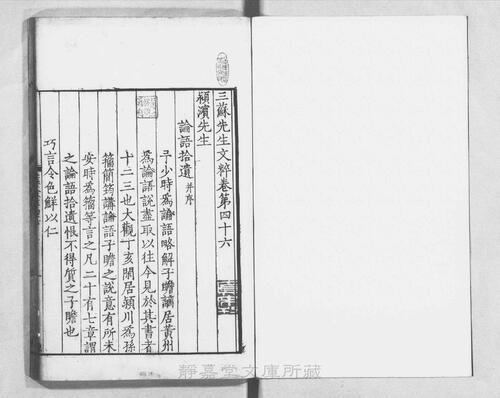 三蘇先生文粹卷第四十六
潁濱先生
論語拾遺 并序
予少時為論語略解子瞻謫居黃州
為論語說盡取以往今見於其書者
十二三也大觀丁亥閑居潁川為孫
籀簡筠講論語子瞻之說意有所未
安時為籀等言之凡二十有七章謂
之論語拾遺恨不得質之子瞻也
巧言令色鮮以仁
靜嘉堂文庫所藏